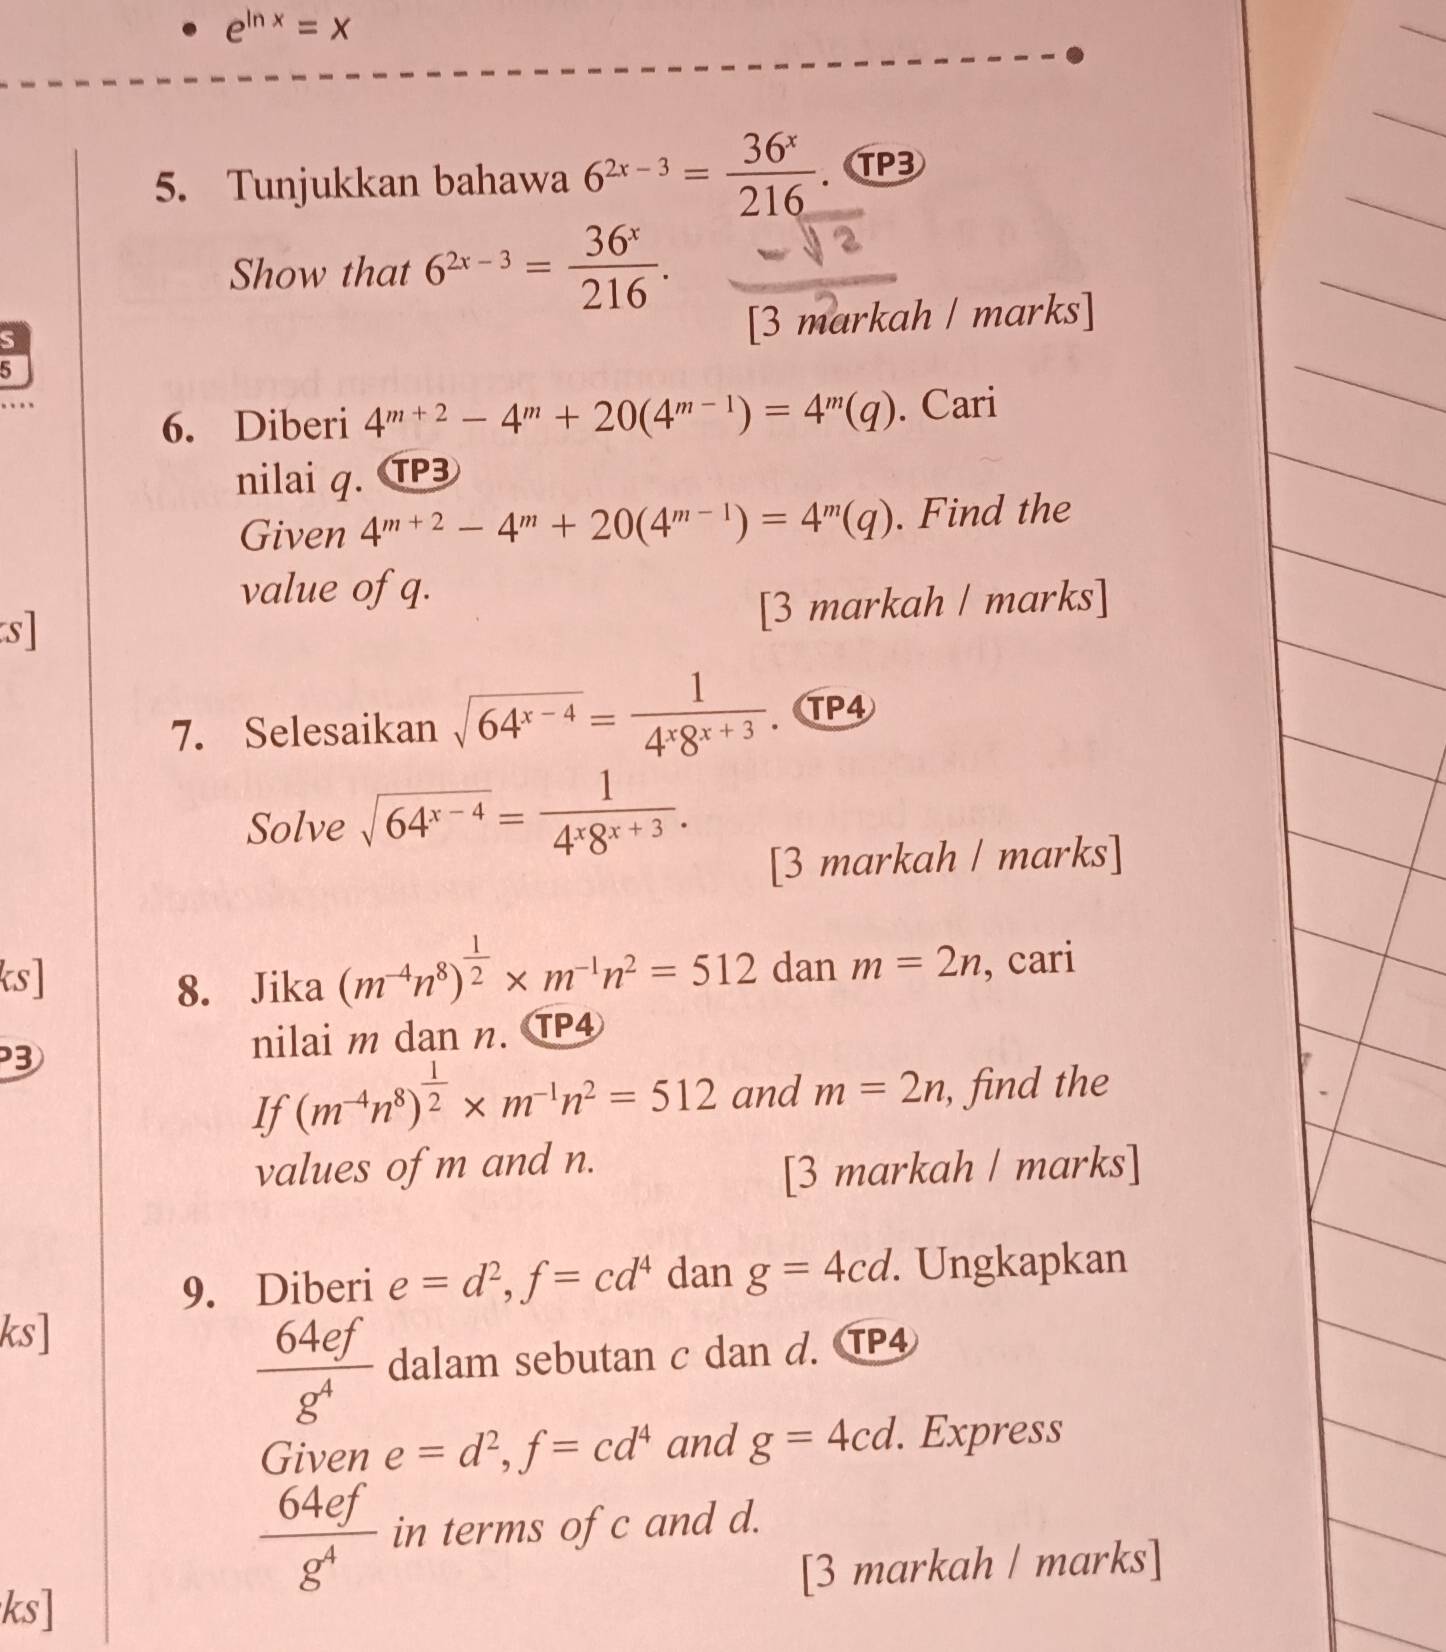 • e^{ln x} = x
5. Tunjukkan bahawa 6^{2x − 3} = \frac{36^x}{216}. TP3
Show that 6^{2x − 3} = \frac{36^x}{216}.
\frac{-\sqrt{2}}{2}
[3 markah / marks]
S
5
6. Diberi 4^{m + 2} − 4^m + 20(4^{m − 1}) = 4^m(q). Cari
nilai q. TP3
Given 4^{m + 2} − 4^m + 20(4^{m − 1}) = 4^m(q). Find the
value of q. [3 markah / marks]
s]
7. Selesaikan \sqrt{64^{x − 4}} = \frac{1}{4^x 8^{x + 3}}. TP4
Solve \sqrt{64^{x − 4}} = \frac{1}{4^x 8^{x + 3}}.
[3 markah / marks]
ks]
8. Jika (m^{−4}n^8)^{\frac{1}{2}} × m^{−1}n^2 = 512 dan m = 2n, cari
nilai m dan n. TP4
P3
If (m^{−4}n^8)^{\frac{1}{2}} × m^{−1}n^2 = 512 and m = 2n, find the
values of m and n. [3 markah / marks]
9. Diberi e = d^2, f = cd^4 dan g = 4cd. Ungkapkan
ks]
\frac{64ef}{g^4} dalam sebutan c dan d. TP4
Given e = d^2, f = cd^4 and g = 4cd. Express
\frac{64ef}{g^4} in terms of c and d.
[3 markah / marks]
ks]